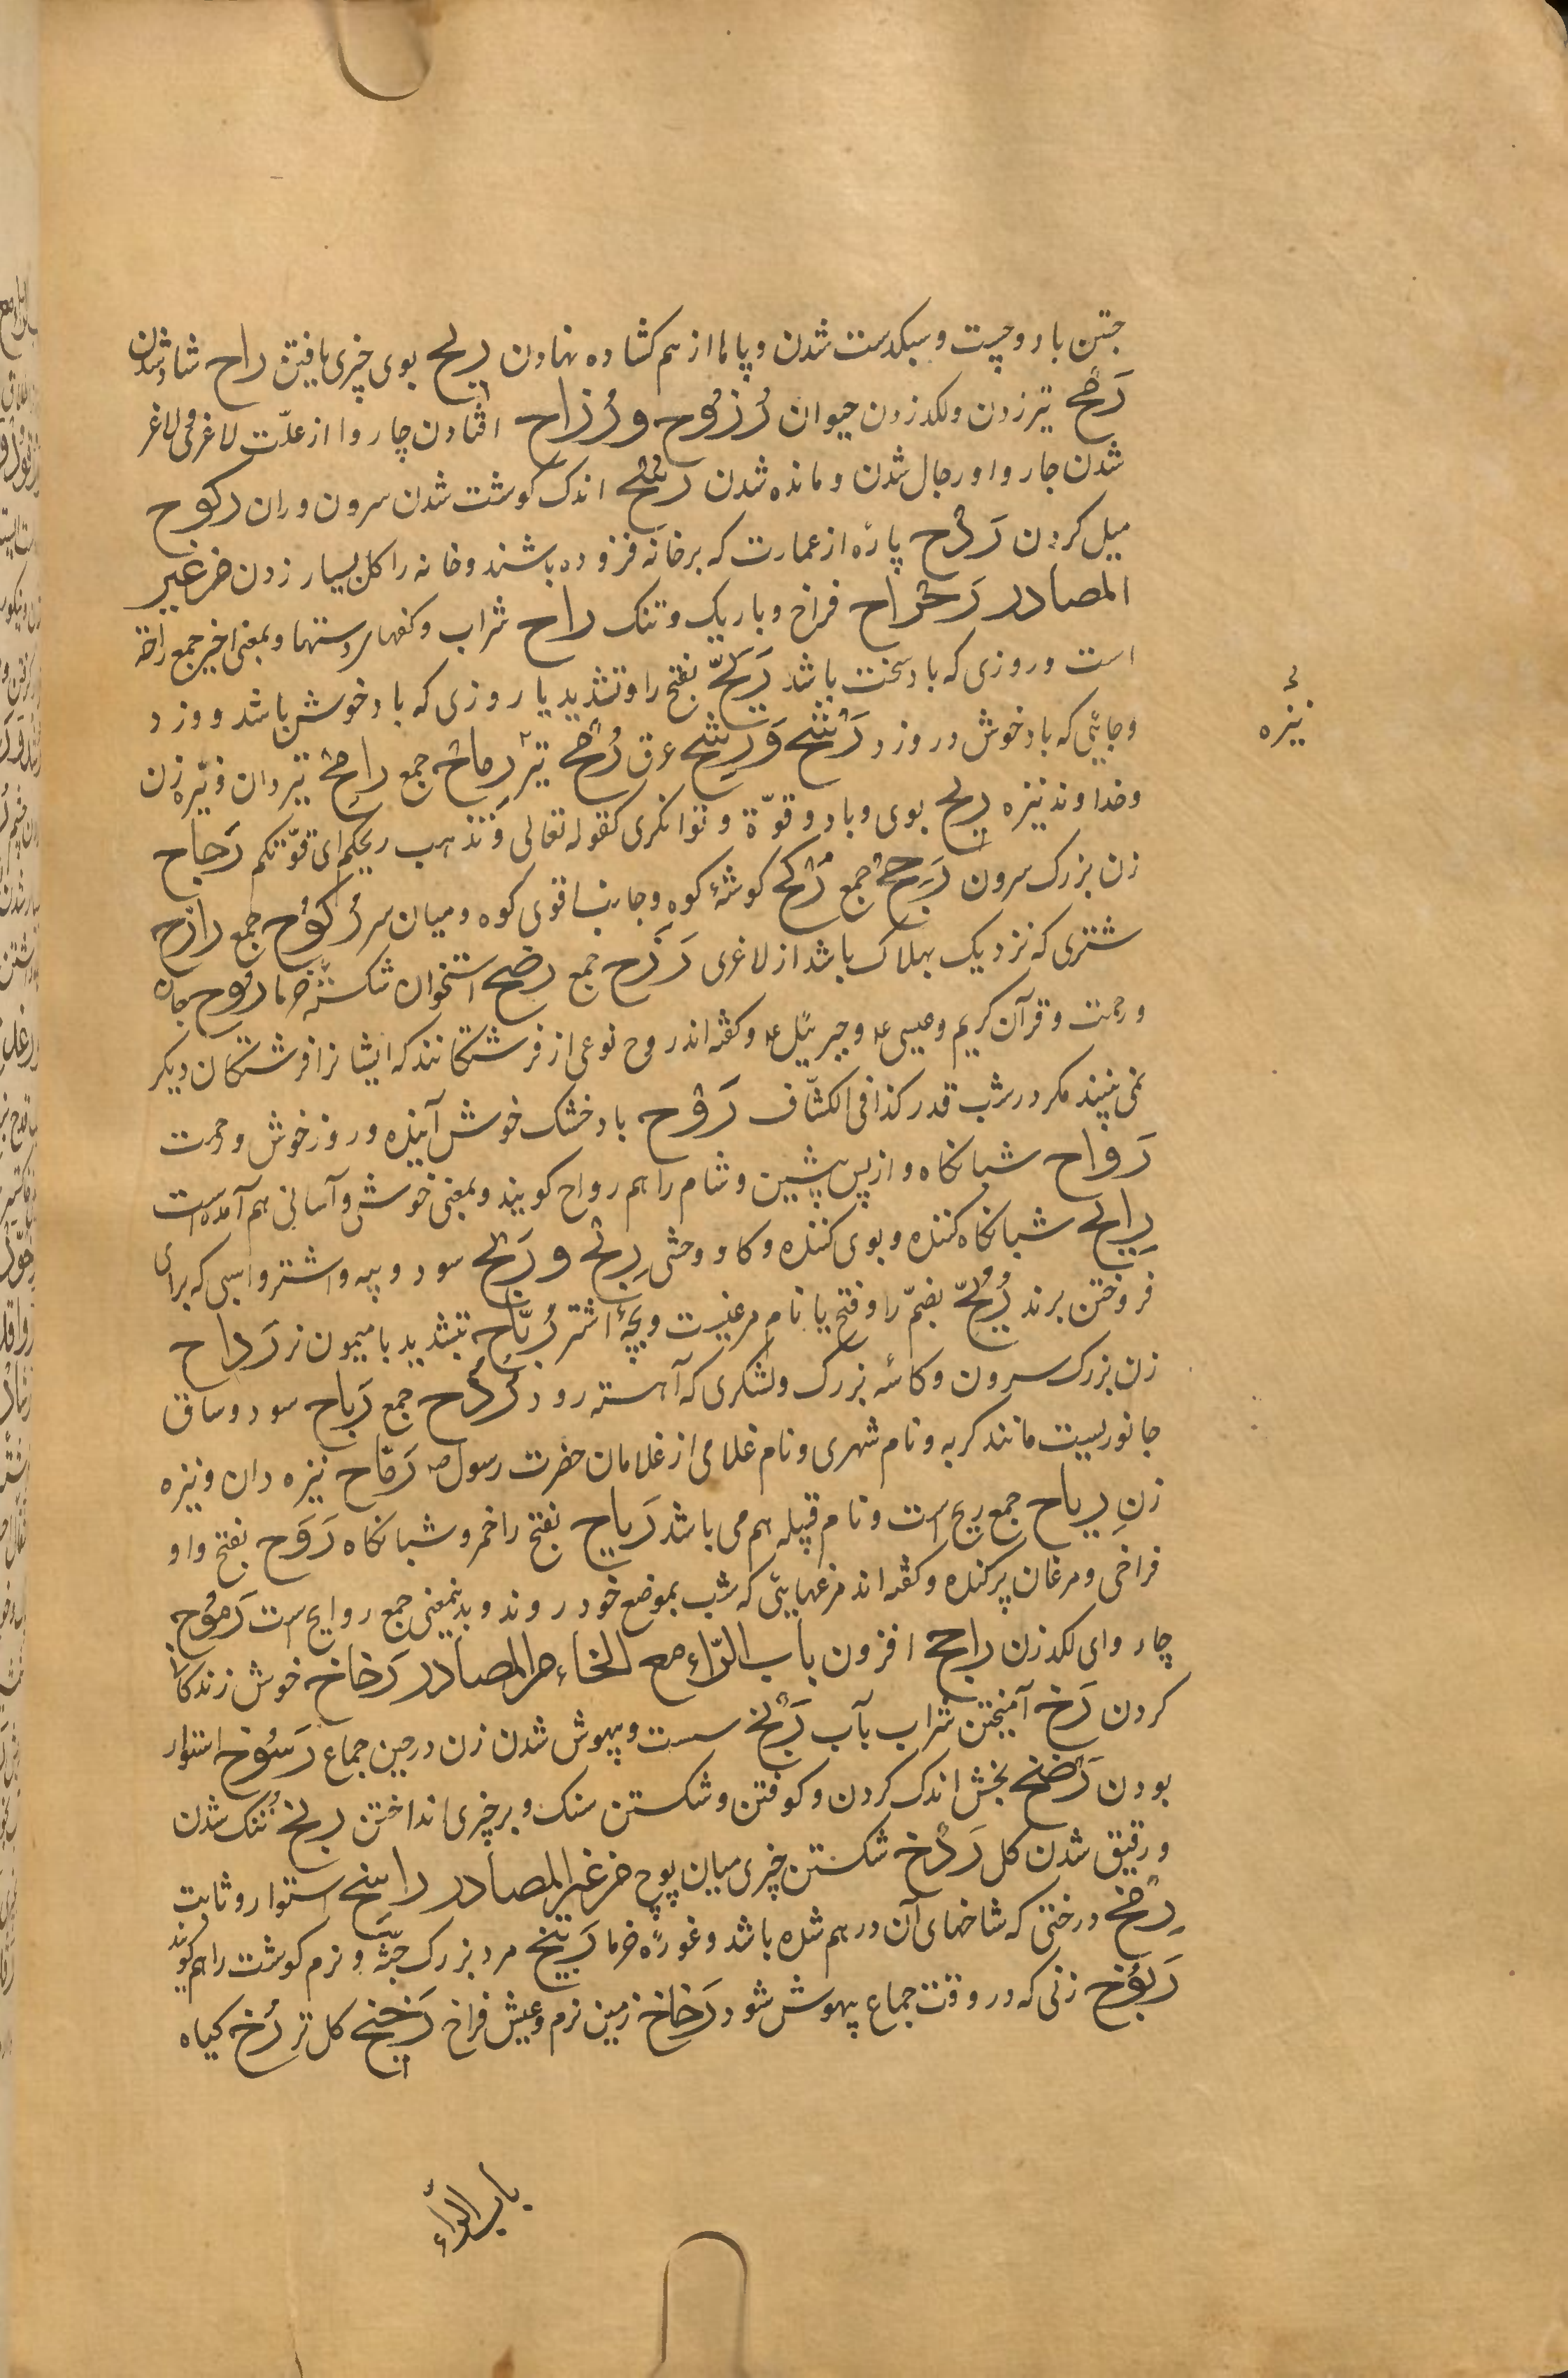 جستن باد و چست و سبکدست شدن و پاها از هم کشاده نهادن ریح بوی چیزی یافتن راح شاد شدن
رَمْح تیر زدن و لکد زدن حیوان رُزُوح و رُزاح افتادن چاروا از علّت لاغری و لاغر
شدن چاروا و رجال شدن و مانده شدن رَسْح اندک کوشت شدن سرون و ران رکوح
میل کردن رَدْح پارهٔ از عمارت که بر خانه فزوده باشند و خانه را کل بسیار زدن من غیر
المصادر رَحْراح فراخ و باریک و تنک راح شراب و کفهای دستها و بمعنی اخیر جمع راحة
است و روزی که باد سخت باشد رَیِّح بفتح را و تشدید یا روزی که باد خوش باشد و وزد
و جائی که باد خوش در وزد رَشْح وَ رَشِح عرق رُمْح تیر رِماح جمع رامح تیردان و تیره زن
نیزه
و خداوند نیزه ریح بوی و باد و قوّة و توانکری کقوله تعالی وَ تَذهب ریحکم ای قوّتکم رَجاح
زن بزرک سرون رَجح جمع رُکْح کوشهٔ کوه و جانب قوی کوه و میان سر رُکُوح جمع رازح
شتری که نزدیک بهلاک باشد از لاغری رَزَح جمع رضح استخوان شکسته خرما رُوح جان
و رحمت و قرآن کریم و عیسی ع و جبرئیل ع و کفته اند روح نوعی از فرشتکانند که ایشانرا فرشتکان دیکر
نمی بینند مکر در شب قدر کذا فی الکشّاف رَوْح باد خشک خوش آینده و روز خوش و رحمت
رَواح شبانکاه و از پس پیشین و شام را هم رواح کویند و بمعنی خوش و آسانی هم آمده است
رایح شبانکاه کننده و بوی کننده و کاو وحشی رِبْح و رَبَح سود و پیه و اشتر و اسبی که برای
فروختن برند رُبَح بضمّ را و فتح با نام مرغیست و بچهٔ اشتر رُبّاح بتشدید با میمون نر رَداح
زن بزرک سرون و کاسه بزرک و لشکری که آهسته رود رُدُح جمع رَباح سود و ساق
جانوریست مانند کربه و نام شهری و نام غلامی از غلامان حضرت رسول ص رَمّاح نیزه دان و نیزه
زن رِیاح جمع ریح است و نام قبیله هم می باشد رَیاح بفتح را خمر و شبانکاه رَوَح بفتح واو
فراخی و مرغان پرکنده و کفته اند مرغهایی که شب بموضع خود روند و بدینمعنی جمع روایح است رَمُوح
چاروای لکدزن راجح افزون باب الرّاء مع الخاء من المصادر رَخاخ خوش زندکانی
کردن رَخ آمیختن شراب بآب رَبْخ سست و بیهوش شدن زن در حین جماع رَسُوخ استوار
بودن رَضْخ بخش اندک کردن و کوفتن و شکستن سنک و بر چیزی انداختن ریخ تُنُک شدن
و رقیق شدن کل رَدْخ شکستن چیزی میان پوچ من غیر المصادر راسخ استوار و ثابت
رِمْخ درختی که شاخهای آن در هم شده باشد و غورهٔ خرما رَبیخ مرد بزرک جثّه و نرم کوشت را هم کویند
رَبُوخ زنی که در وقت جماع بیهوش شود رَخاخ زمین نرم و عیش فراخ رَخیخ کل تر رُخ کیاه
باب الراء